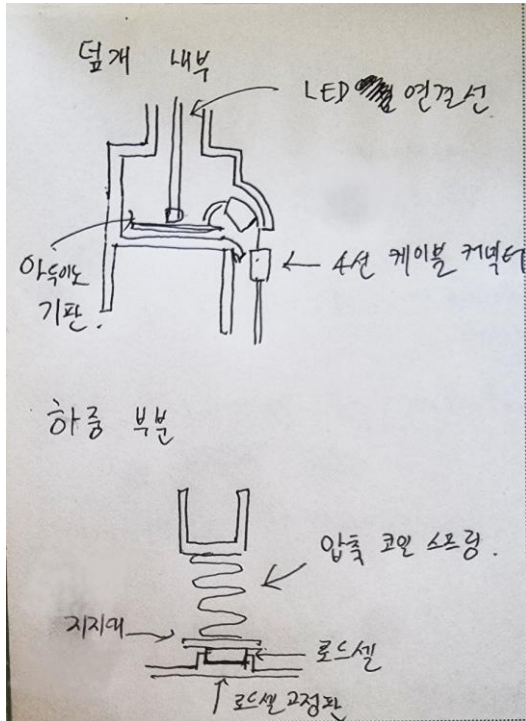 덮개 내부
LED 연결선
아두이노
기판.
4선 케이블 커넥터
하중 부분
압축 코일 스프링.
지지대
로드셀
로드셀고정판